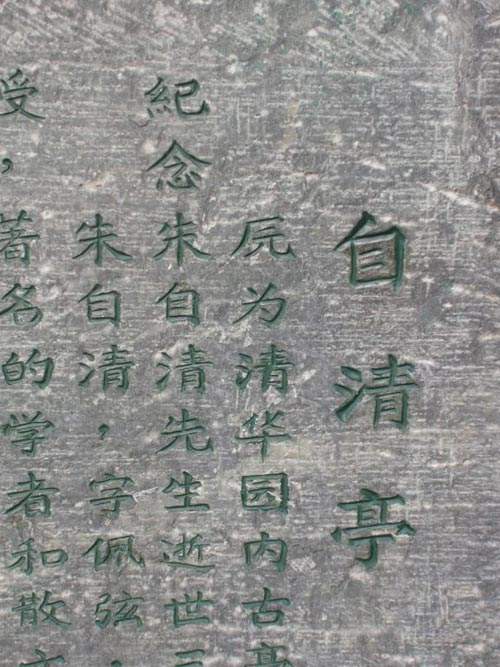 自清亭
原为清华园内古亭
紀念朱自清先生逝世三
朱自清，字佩弦，
授，著名的学者和散文